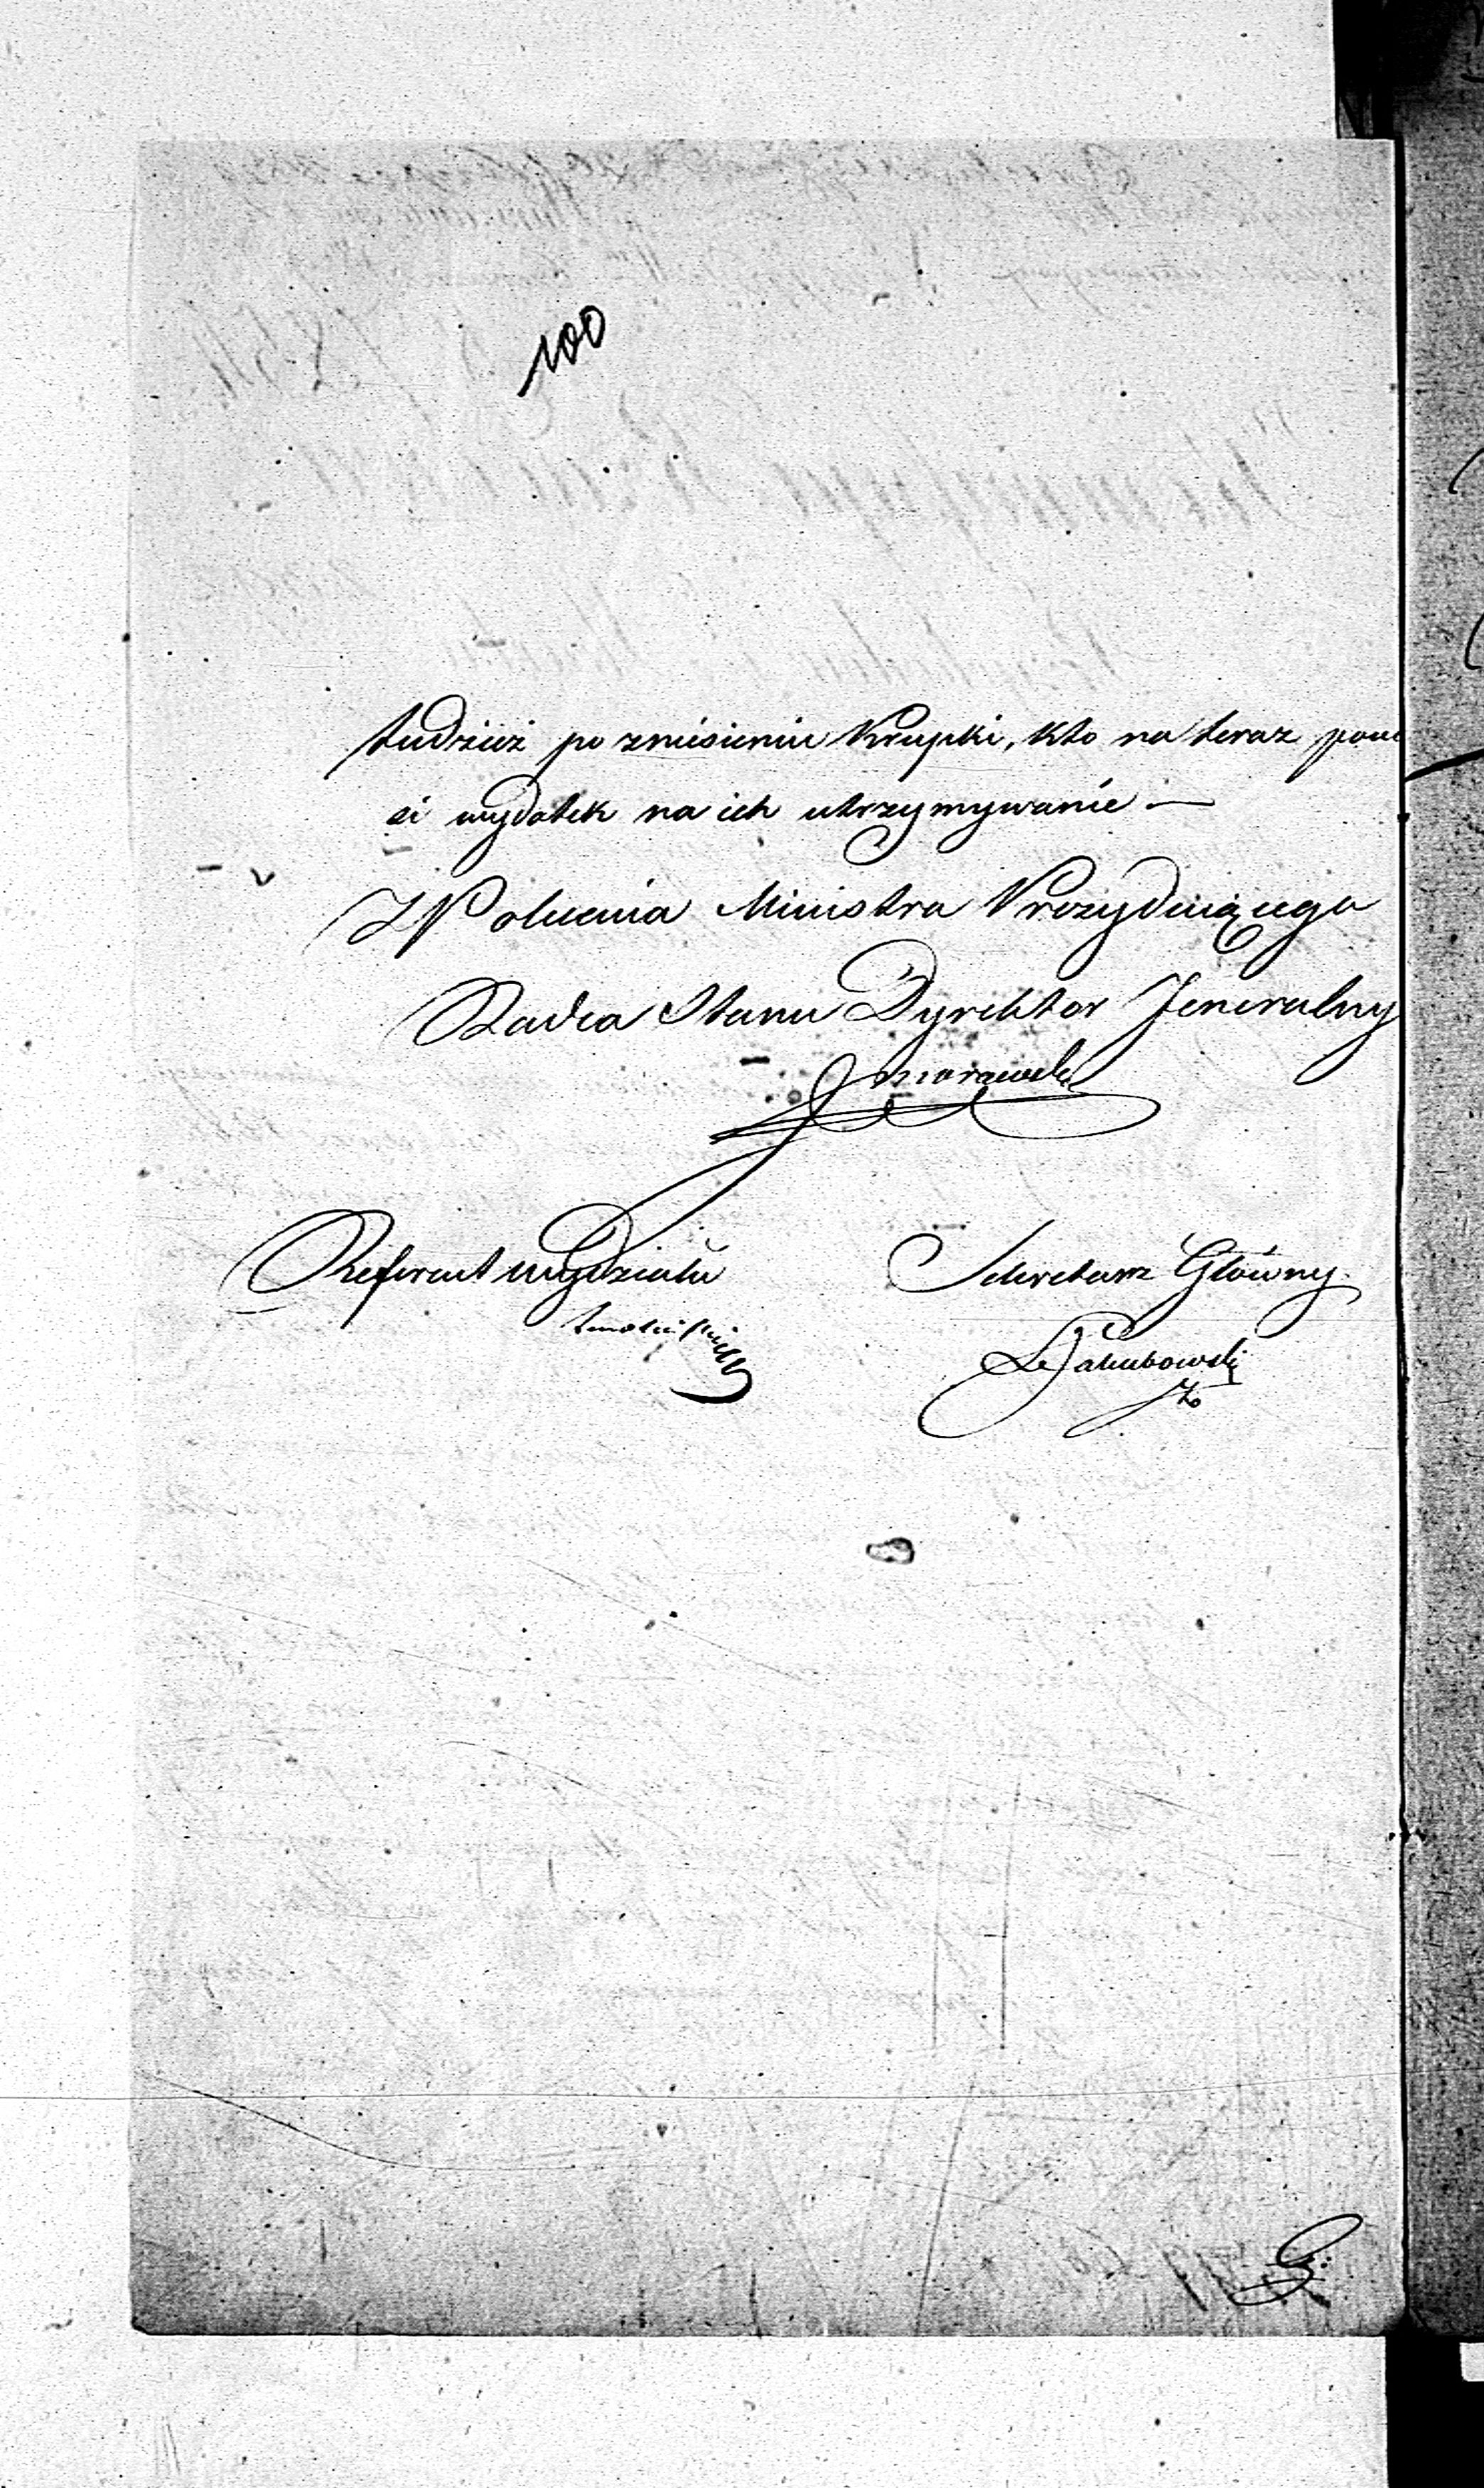 100
tudzież po zniesieniu Krupki, kto na teraz pono
si wydatek na ich utrzymywanie —
Z Polecenia Ministra Prezydującego
Radca Stanu Dyrektor Jeneralny
Morawski
Referent wydziału
Sekretarz Główny
Jakubowski